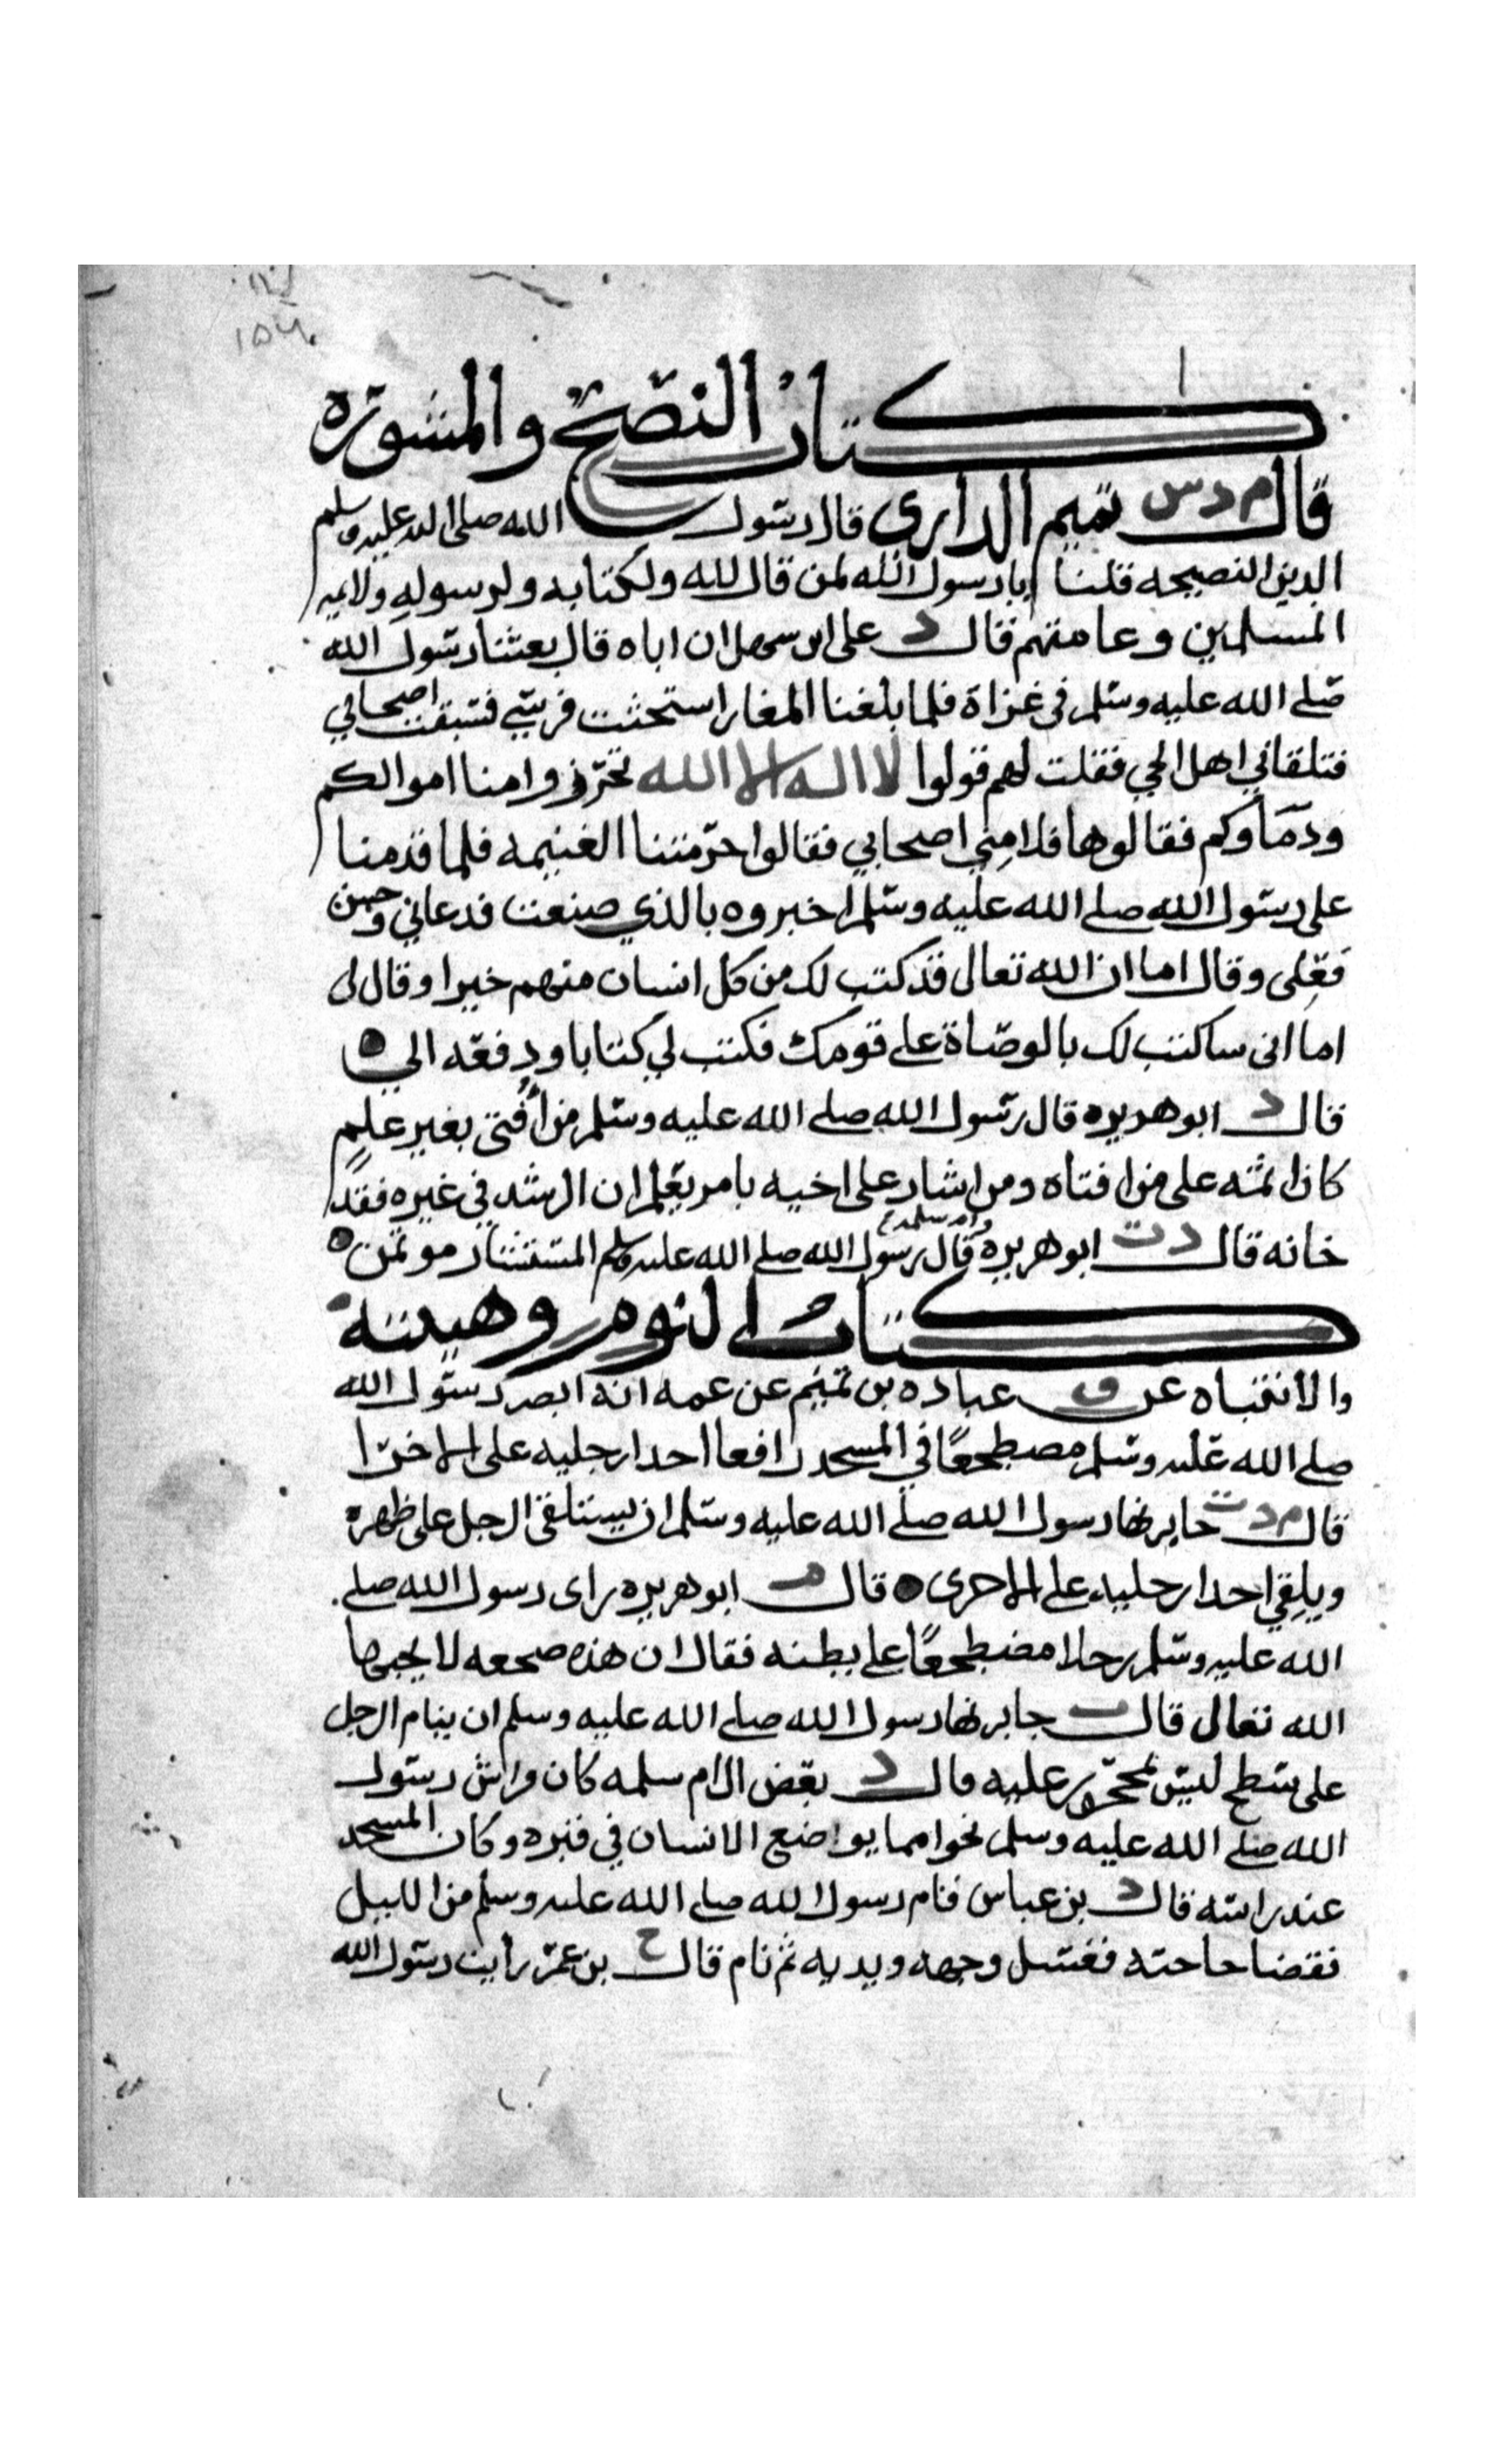 ١٥٧
كتاب النصح والمشوره
قال م د س تميم الداري قال رسول الله صلى الله عليه وسلم
الدين النصيحه قلنا يا رسول الله لمن قال لله ولكتابه ولرسوله ولايمه
المسلمين وعامتهم قال د على ابن سهل ان اباه قال بعثنا رسول الله
صلى الله عليه وسلم في غزاة فلما بلغنا المغار استحثت فرسي فسبقت اصحابي
فتلقاني اهل الحي فقلت لهم قولوا لا اله الا الله تحرزوا منا اموالكم
ودماوكم فقالوها فلامني اصحابي فقالوا حرمتنا الغنيمه فلما قدمنا
على رسول الله صلى الله عليه وسلم اخبروه بالذي صنعت فدعاني وحسن
فعلى وقال اما ان الله تعالى قد كتب لك من كل انسان منهم خيرا وقال لى
اما انى ساكتب لك بالوصاة على قومك فكتب لي كتابا ودفعه الي
قال د ابو هريره قال رسول الله صلى الله عليه وسلم من أُفتى بغير علمٍ
كان اثمه على من افتاه ومن اشار على اخيه بامر يعلم ان الرشد في غيره فقد
خانه قال د ت ابو هريره وام سلمه قال رسول الله صلى الله عليه وسلم المستشار موتمن
كتاب النوم وهيئته
والانتباه عن ق عباده بن تميم عن عمه انه ابصر رسول الله
صلى الله عليه وسلم مصطجعًا في المسجد رافعا احدا رجليه على الاخرا
قال م د ت جابر نها رسول الله صلى الله عليه وسلم ان يستلقى الرجل على ظهره
ويلقي احدا رجليه على الاخرى قال ت ابو هريره راى رسول الله صلى
الله عليه وسلم رجلا مضطجعًا على بطنه فقال ان هذه ضجعه لا يحبها
الله تعالى قال ت جابر نها رسول الله صلى الله عليه وسلم ان ينام الرجل
على سطح ليس بمحجور عليه قال د بعض ال ام سلمه كان فراش رسول
الله صلى الله عليه وسلم نحوا مما يواضع الانسان في قبره وكان المسجد
عند راسه قال د بن عباس قام رسول الله صلى الله عليه وسلم من الليل
فقضا حاجته فغسل وجهه ويديه ثم نام قال خ بن عمر رأيت رسول الله